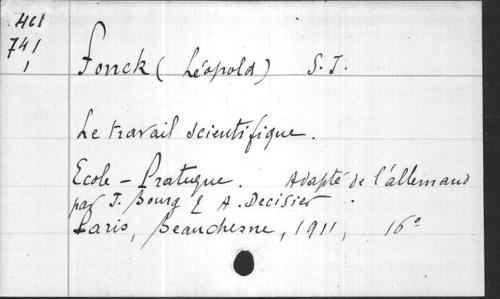 461
741
1
Fonck (Léopold) S.J.
Le travail scientifique.
Ecole - Pratique. Adapté de l'allemand
par J. Bourg & A. Decisier.
Paris, Beauchesne, 1911, 16°